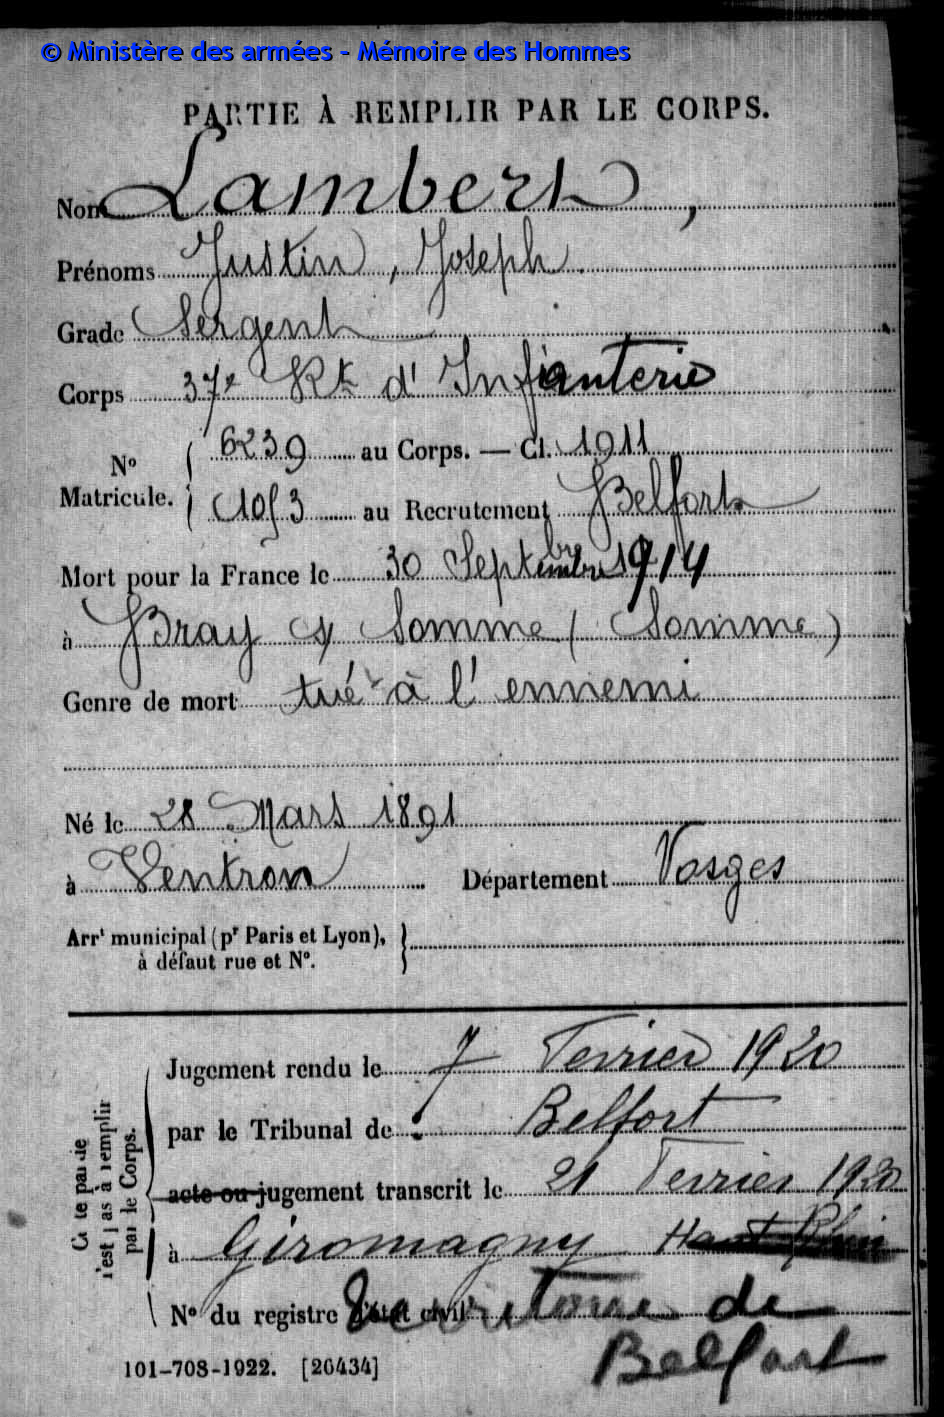 © Ministère des armées - Mémoire des Hommes
PARTIE À REMPLIR PAR LE CORPS.
Nom Lambert,
Prénoms Justin, Joseph.
Grade Sergent
Corps 37e Rt d'Infanterie
No
Matricule.
6239 au Corps. — Cl. 1911
1053 au Recrutement Belfort
Mort pour la France le 30 Septembre 1914
à Bray s/ Somme (Somme)
Genre de mort tué à l'ennemi
Né le 28 Mars 1891
à Ventron Département Vosges
Arrt municipal (pr Paris et Lyon),
à défaut rue et No.
Cette partie
n'est pas à remplir
par le Corps.
Jugement rendu le 7 Février 1920
par le Tribunal de Belfort
acte ou jugement transcrit le 21 Février 1920
à Giromagny Haut Rhin
No du registre d'état civil Territoire de
Belfort
101-708-1922. [26434]